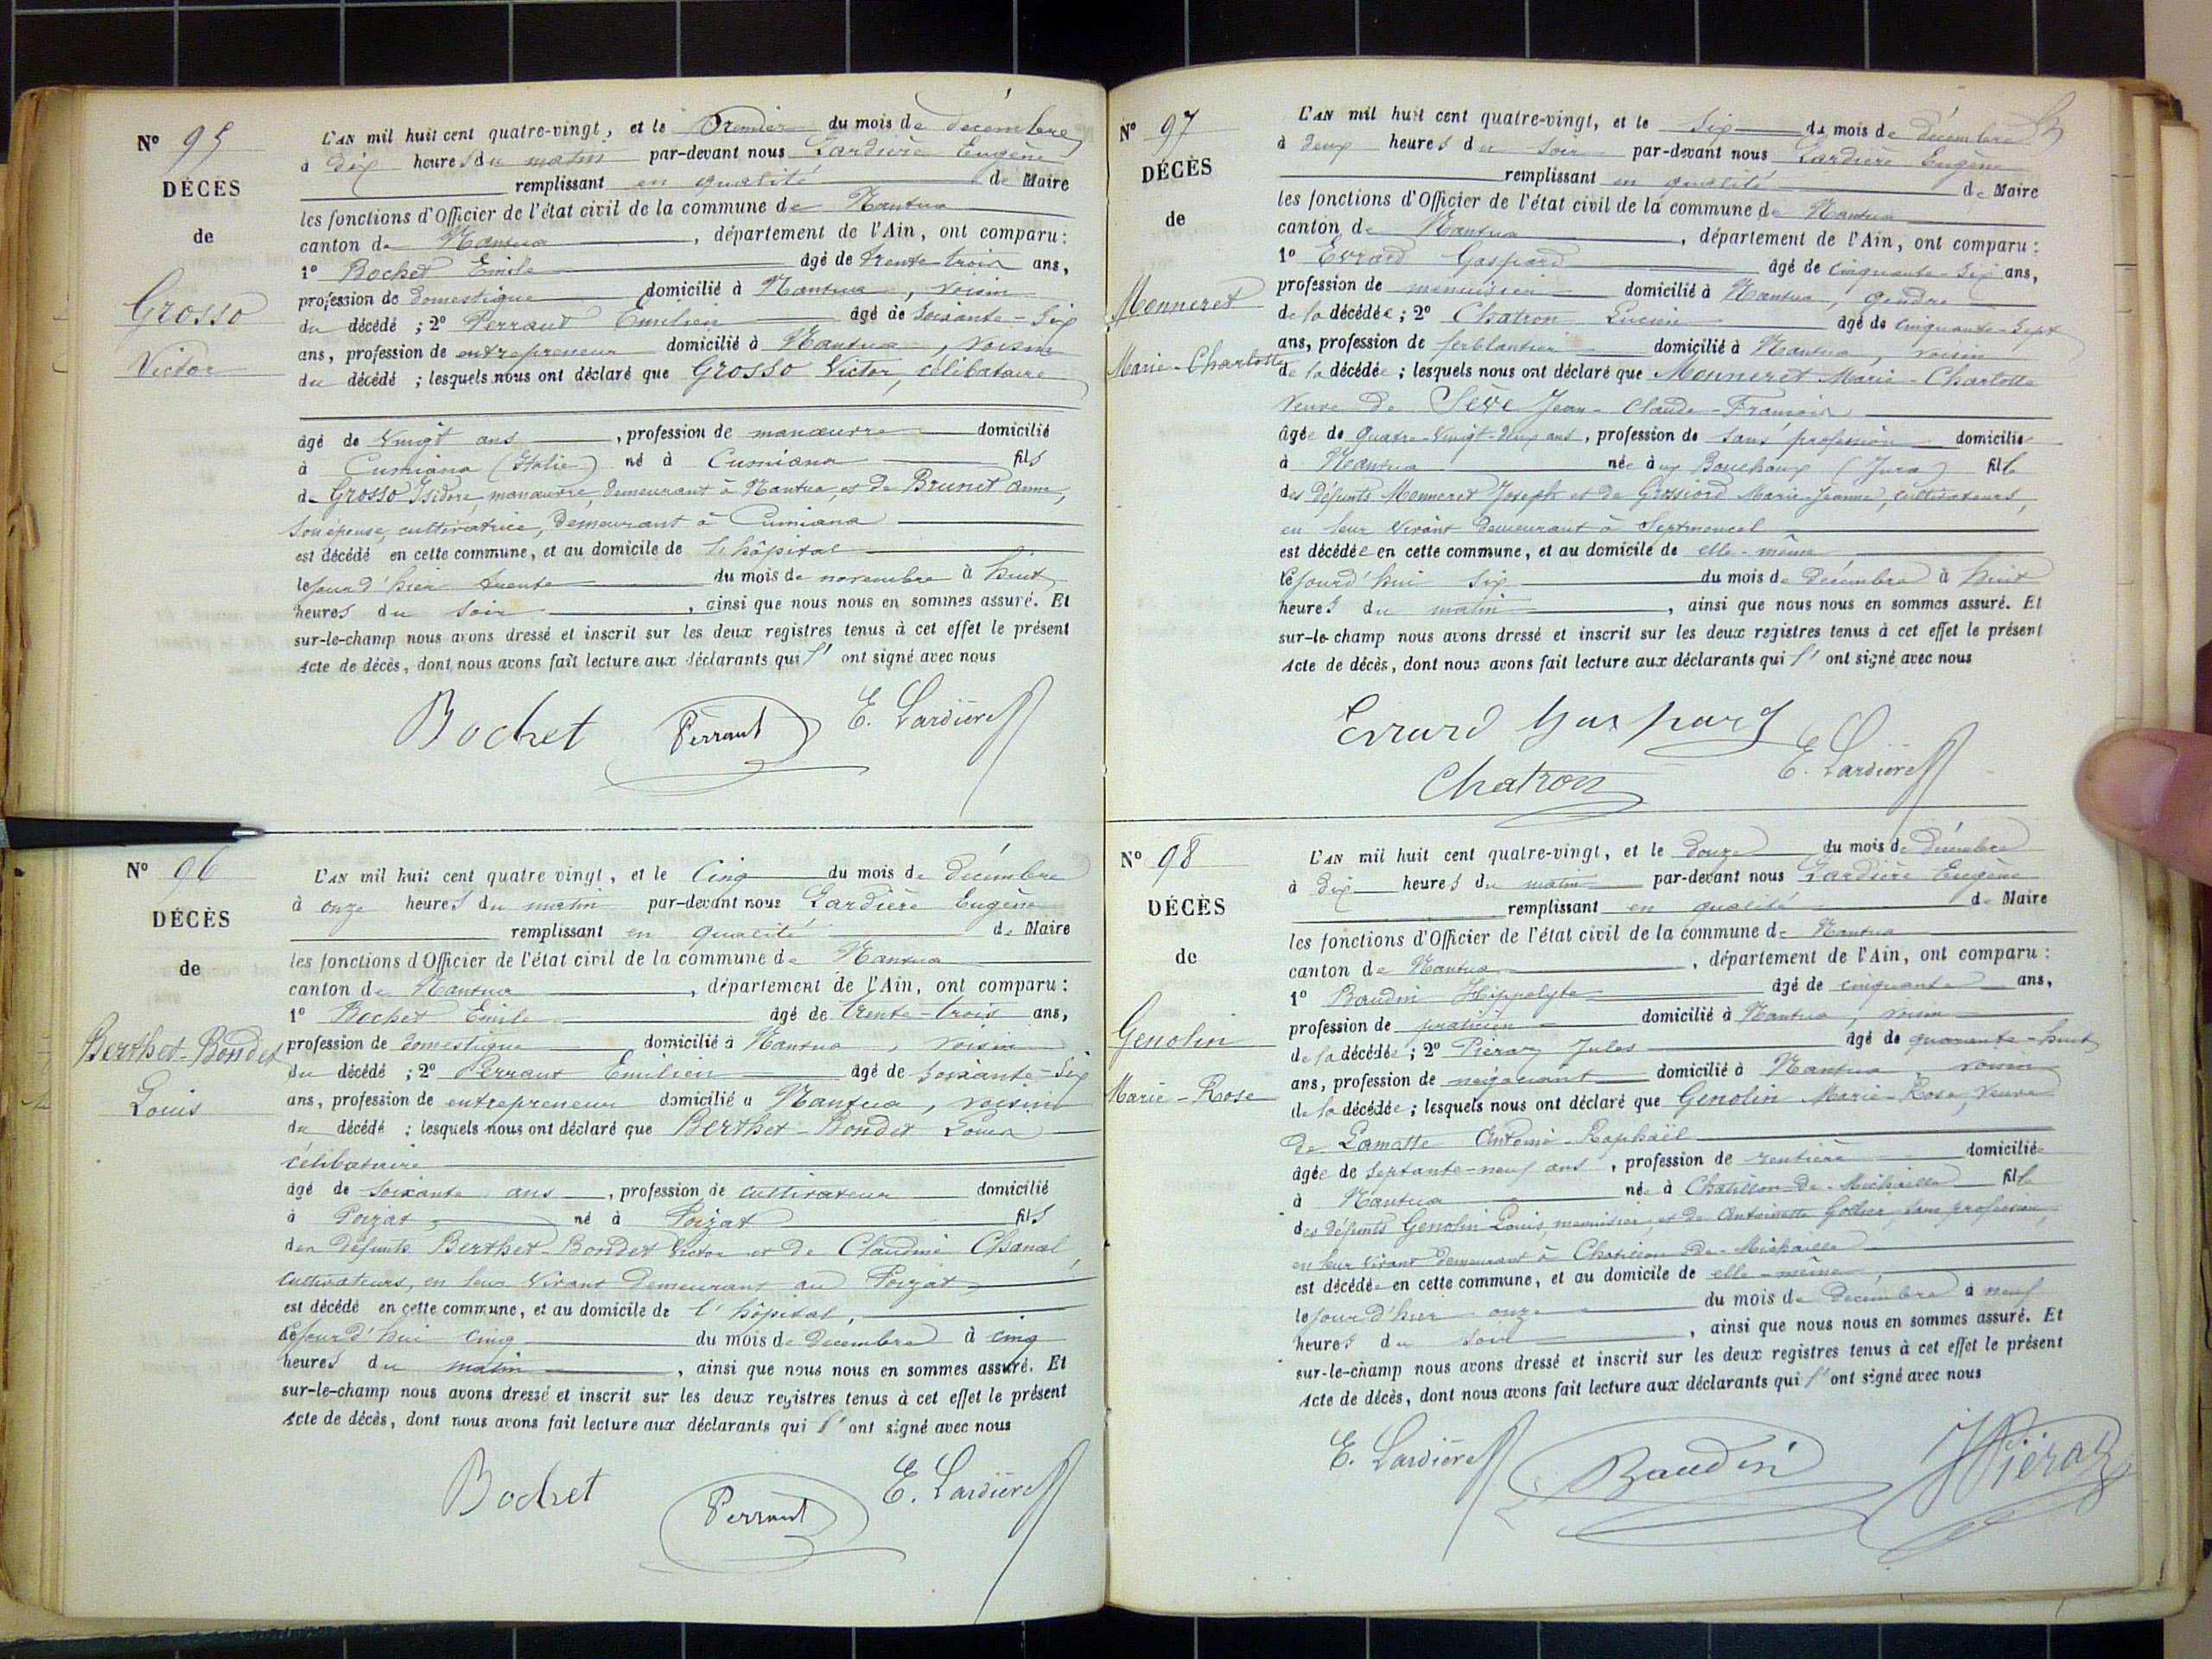 N° 95
DÉCÈS
de
Grosso
Victor
L'AN mil huit cent quatre-vingt, et le Premier du mois de décembre
à Dix heures du matin par-devant nous Lardière Eugène
remplissant en qualité de Maire
les fonctions d'Officier de l'état civil de la commune de Nantua
canton de Nantua, département de l'Ain, ont comparu :
1° Bochet Emile âgé de trente trois ans,
profession de domestique domicilié à Nantua, voisin
du décédé ; 2° Perraut Emilien âgé de soixante-six
ans, profession de entrepreneur domicilié à Nantua, voisin
du décédé ; lesquels nous ont déclaré que Grosso Victor, célibataire
âgé de vingt ans, profession de manœuvre domicilié
à Cumiana (Italie) né à Cumiana fils
de Grosso Isidore, manœuvre, demeurant à Nantua, et de Brunet Anne,
son épouse, cultivatrice, demeurant à Cumiana
est décédé en cette commune, et au domicile de l'hôpital
le jour d'hier trente du mois de novembre à huit
heures du soir, ainsi que nous nous en sommes assuré. Et
sur-le-champ nous avons dressé et inscrit sur les deux registres tenus à cet effet le présent
Acte de décès, dont nous avons fait lecture aux déclarants qui l'ont signé avec nous
Bochet Perraut E. Lardière
N° 96
DÉCÈS
de
Berthet-Bondet
Louis
L'AN mil huit cent quatre vingt, et le Cinq du mois de décembre
à onze heures du matin par-devant nous Lardière Eugène
remplissant en qualité de Maire
les fonctions d'Officier de l'état civil de la commune de Nantua
canton de Nantua, département de l'Ain, ont comparu :
1° Bochet Emile âgé de trente-trois ans,
profession de domestique domicilié à Nantua, voisin
du décédé ; 2° Perraut Emilien âgé de soixante-six
ans, profession de entrepreneur domicilié à Nantua, voisin
du décédé ; lesquels nous ont déclaré que Berthet-Bondet Louis
célibataire
âgé de soixante ans, profession de cultivateur domicilié
à Poizat né à Poizat fils
des défunts Berthet-Bondet Victor et de Claudine Chanal,
cultivateurs, en leur vivant demeurant au Poizat
est décédé en cette commune, et au domicile de l'hôpital,
le jour d'hui cinq du mois de décembre à cinq
heures du matin, ainsi que nous nous en sommes assuré. Et
sur-le-champ nous avons dressé et inscrit sur les deux registres tenus à cet effet le présent
Acte de décès, dont nous avons fait lecture aux déclarants qui l'ont signé avec nous
Bochet Perraut E. Lardière
N° 97
DÉCÈS
de
Monneret
Marie-Charlotte
L'AN mil huit cent quatre-vingt, et le six du mois de décembre
à deux heures du soir par-devant nous Lardière Eugène
remplissant en qualité de Maire
les fonctions d'Officier de l'état civil de la commune de Nantua
canton de Nantua, département de l'Ain, ont comparu :
1° Evrard Gaspard âgé de cinquante-six ans,
profession de menuisier domicilié à Nantua, gendre
de la décédée ; 2° Chatron Lucien âgé de cinquante-sept
ans, profession de ferblantier domicilié à Nantua, voisin
de la décédée ; lesquels nous ont déclaré que Monneret Marie-Charlotte
veuve de Sève Jean-Claude-François
âgée de quatre-vingt-deux ans, profession de sans profession domiciliée
à Nantua née aux Bouchoux (Jura) fille
des défunts Monneret Joseph et de Grossiord Marie-Jeanne, cultivateurs,
en leur vivant demeurant à Septmoncel
est décédée en cette commune, et au domicile de elle-même
le jourd'hui six du mois de décembre à huit
heures du matin, ainsi que nous nous en sommes assuré. Et
sur-le-champ nous avons dressé et inscrit sur les deux registres tenus à cet effet le présent
Acte de décès, dont nous avons fait lecture aux déclarants qui l'ont signé avec nous
Evrard Gaspard
Chatron E. Lardière
N° 98
DÉCÈS
de
Genolin
Marie-Rose
L'AN mil huit cent quatre-vingt, et le douze du mois de décembre
à dix heures du matin par-devant nous Lardière Eugène
remplissant en qualité de Maire
les fonctions d'Officier de l'état civil de la commune de Nantua
canton de Nantua, département de l'Ain, ont comparu :
1° Baudin Hippolyte âgé de cinquante ans,
profession de praticien domicilié à Nantua, voisin
de la décédée ; 2° Piéraz Jules âgé de quarante-huit
ans, profession de négociant domicilié à Nantua, voisin
de la décédée ; lesquels nous ont déclaré que Genolin Marie-Rose, veuve
de Lamotte Antoine-Raphaël
âgée de septante-neuf ans, profession de rentière domiciliée
à Nantua née à Chatillon-de-Michaille fille
des défunts Genolin Louis, menuisier, et de Antoinette, sans profession,
en leur vivant demeurant à Chatillon-de-Michaille
est décédée en cette commune, et au domicile de elle-même,
le jour d'hier onze du mois de décembre à neuf
heures du soir, ainsi que nous nous en sommes assuré. Et
sur-le-champ nous avons dressé et inscrit sur les deux registres tenus à cet effet le présent
Acte de décès, dont nous avons fait lecture aux déclarants qui l'ont signé avec nous
E. Lardière Baudin J Piéraz